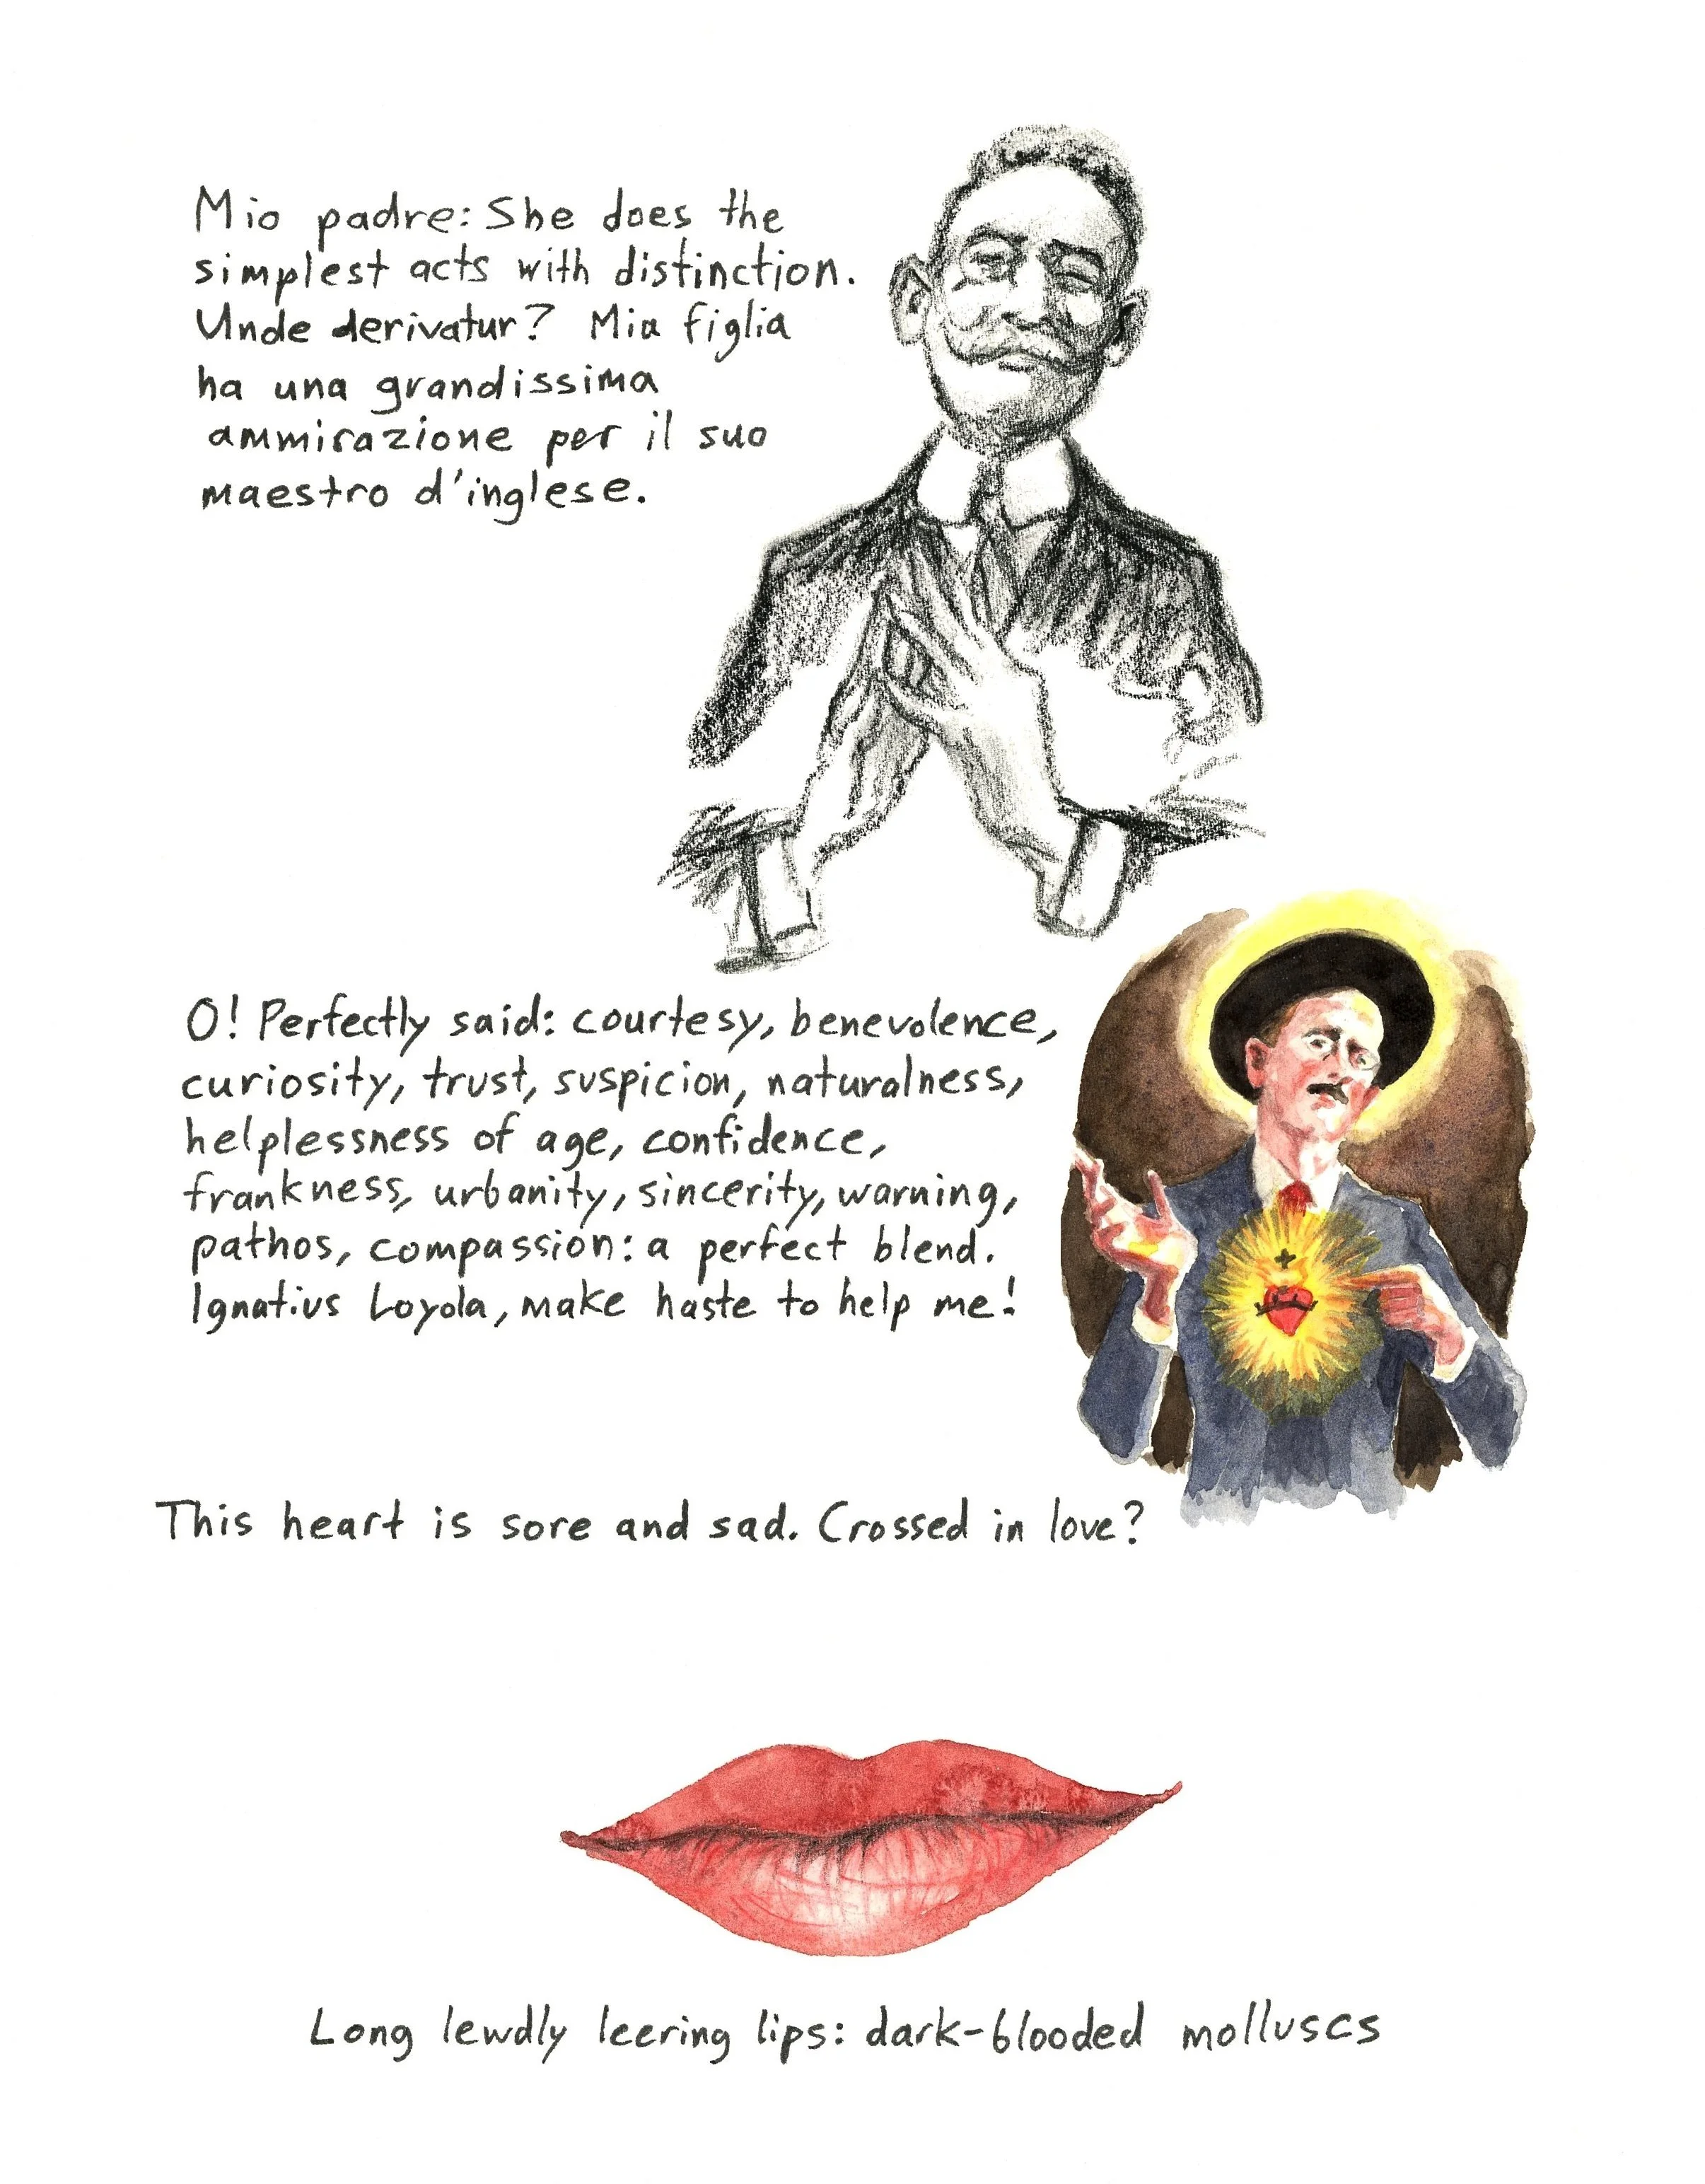 Mio padre: She does the
simplest acts with distinction.
Unde derivatur? Mia figlia
ha una grandissima
ammirazione per il suo
maestro d'inglese.
O! Perfectly said: courtesy, benevolence,
curiosity, trust, suspicion, naturalness,
helplessness of age, confidence,
frankness, urbanity, sincerity, warning,
pathos, compassion: a perfect blend.
Ignatius Loyola, make haste to help me!
This heart is sore and sad. Crossed in love?
Long lewdly leering lips: dark-blooded molluscs